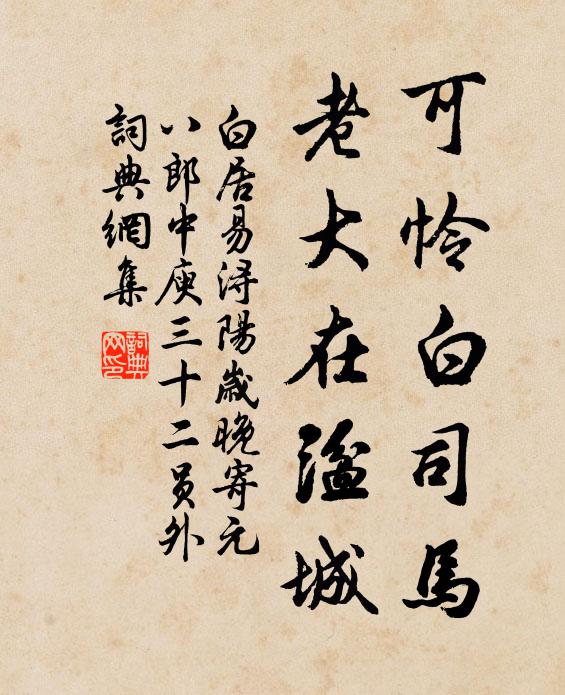 可怜白司馬
老大在湓城
白居易潯陽歲晚寄元
八郎中庾三十二員外
詞典網集
詞典网印